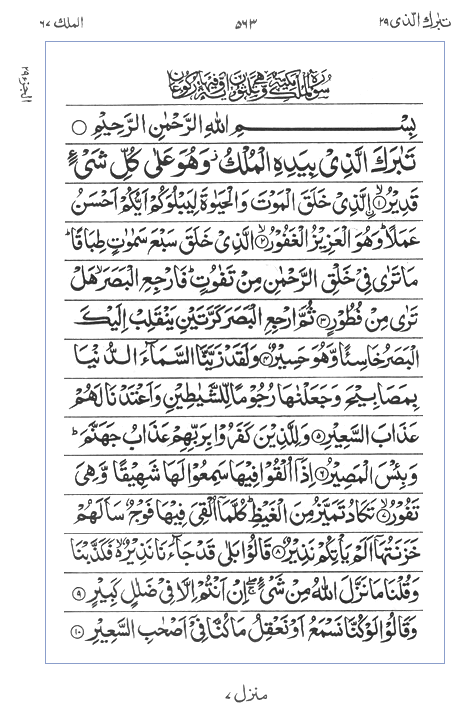 تبٰرك الّذى ٢٩ ٥٦٣ الملك ٦٧
الجزء ٢٩
سُوْرَةُ الْمُلْكِ مَكِّيَّةٌ وَّهِيَ ثَلٰثُوْنَ اٰيَةً وَّفِيْهَا رُكُوْعَانِ
بِسْمِ اللهِ الرَّحْمٰنِ الرَّحِيْمِ ○
تَبٰرَكَ الَّذِىْ بِيَدِهِ الْمُلْكُ ز وَهُوَ عَلٰى كُلِّ شَىْءٍ
قَدِيْرُ ۙ﴿١﴾ اۨلَّذِىْ خَلَقَ الْمَوْتَ وَالْحَيٰوةَ لِيَبْلُوَكُمْ اَيُّكُمْ اَحْسَنُ
عَمَلًا ؕ وَهُوَ الْعَزِيْزُ الْغَفُوْرُ ۙ﴿٢﴾ الَّذِىْ خَلَقَ سَبْعَ سَمٰوٰتٍ طِبَاقًا ؕ
مَا تَرٰى فِىْ خَلْقِ الرَّحْمٰنِ مِنْ تَفٰوُتٍ ؕ فَارْجِعِ الْبَصَرَ ۙ هَلْ
تَرٰى مِنْ فُطُوْرٍ ﴿٣﴾ ثُمَّ ارْجِعِ الْبَصَرَ كَرَّتَيْنِ يَنْقَلِبْ اِلَيْكَ
الْبَصَرُ خَاسِئًا وَّهُوَ حَسِيْرٌ ﴿٤﴾ وَلَقَدْ زَيَّنَّا السَّمَآءَ الدُّنْيَا
بِمَصَابِيْحَ وَجَعَلْنٰهَا رُجُوْمًا لِّلشَّيٰطِيْنِ وَاَعْتَدْنَا لَهُمْ
عَذَابَ السَّعِيْرِ ﴿٥﴾ وَلِلَّذِيْنَ كَفَرُوْا بِرَبِّهِمْ عَذَابُ جَهَنَّمَ ؕ
وَبِئْسَ الْمَصِيْرُ ﴿٦﴾ اِذَاۤ اُلْقُوْا فِيْهَا سَمِعُوْا لَهَا شَهِيْقًا وَّهِىَ
تَفُوْرُ ۙ﴿٧﴾ تَكَادُ تَمَيَّزُ مِنَ الْغَيْظِ ؕ كُلَّمَاۤ اُلْقِىَ فِيْهَا فَوْجٌ سَاَلَهُمْ
خَزَنَتُهَاۤ اَلَمْ يَاْتِكُمْ نَذِيْرٌ ﴿٨﴾ قَالُوْا بَلٰى قَدْ جَآءَنَا نَذِيْرٌ ۙ فَكَذَّبْنَا
وَقُلْنَا مَا نَزَّلَ اللهُ مِنْ شَىْءٍ ۚ اِنْ اَنْتُمْ اِلَّا فِىْ ضَلٰلٍ كَبِيْرٍ ﴿٩﴾
وَقَالُوْا لَوْ كُنَّا نَسْمَعُ اَوْ نَعْقِلُ مَا كُنَّا فِىْۤ اَصْحٰبِ السَّعِيْرِ ﴿١٠﴾
منزل ٧